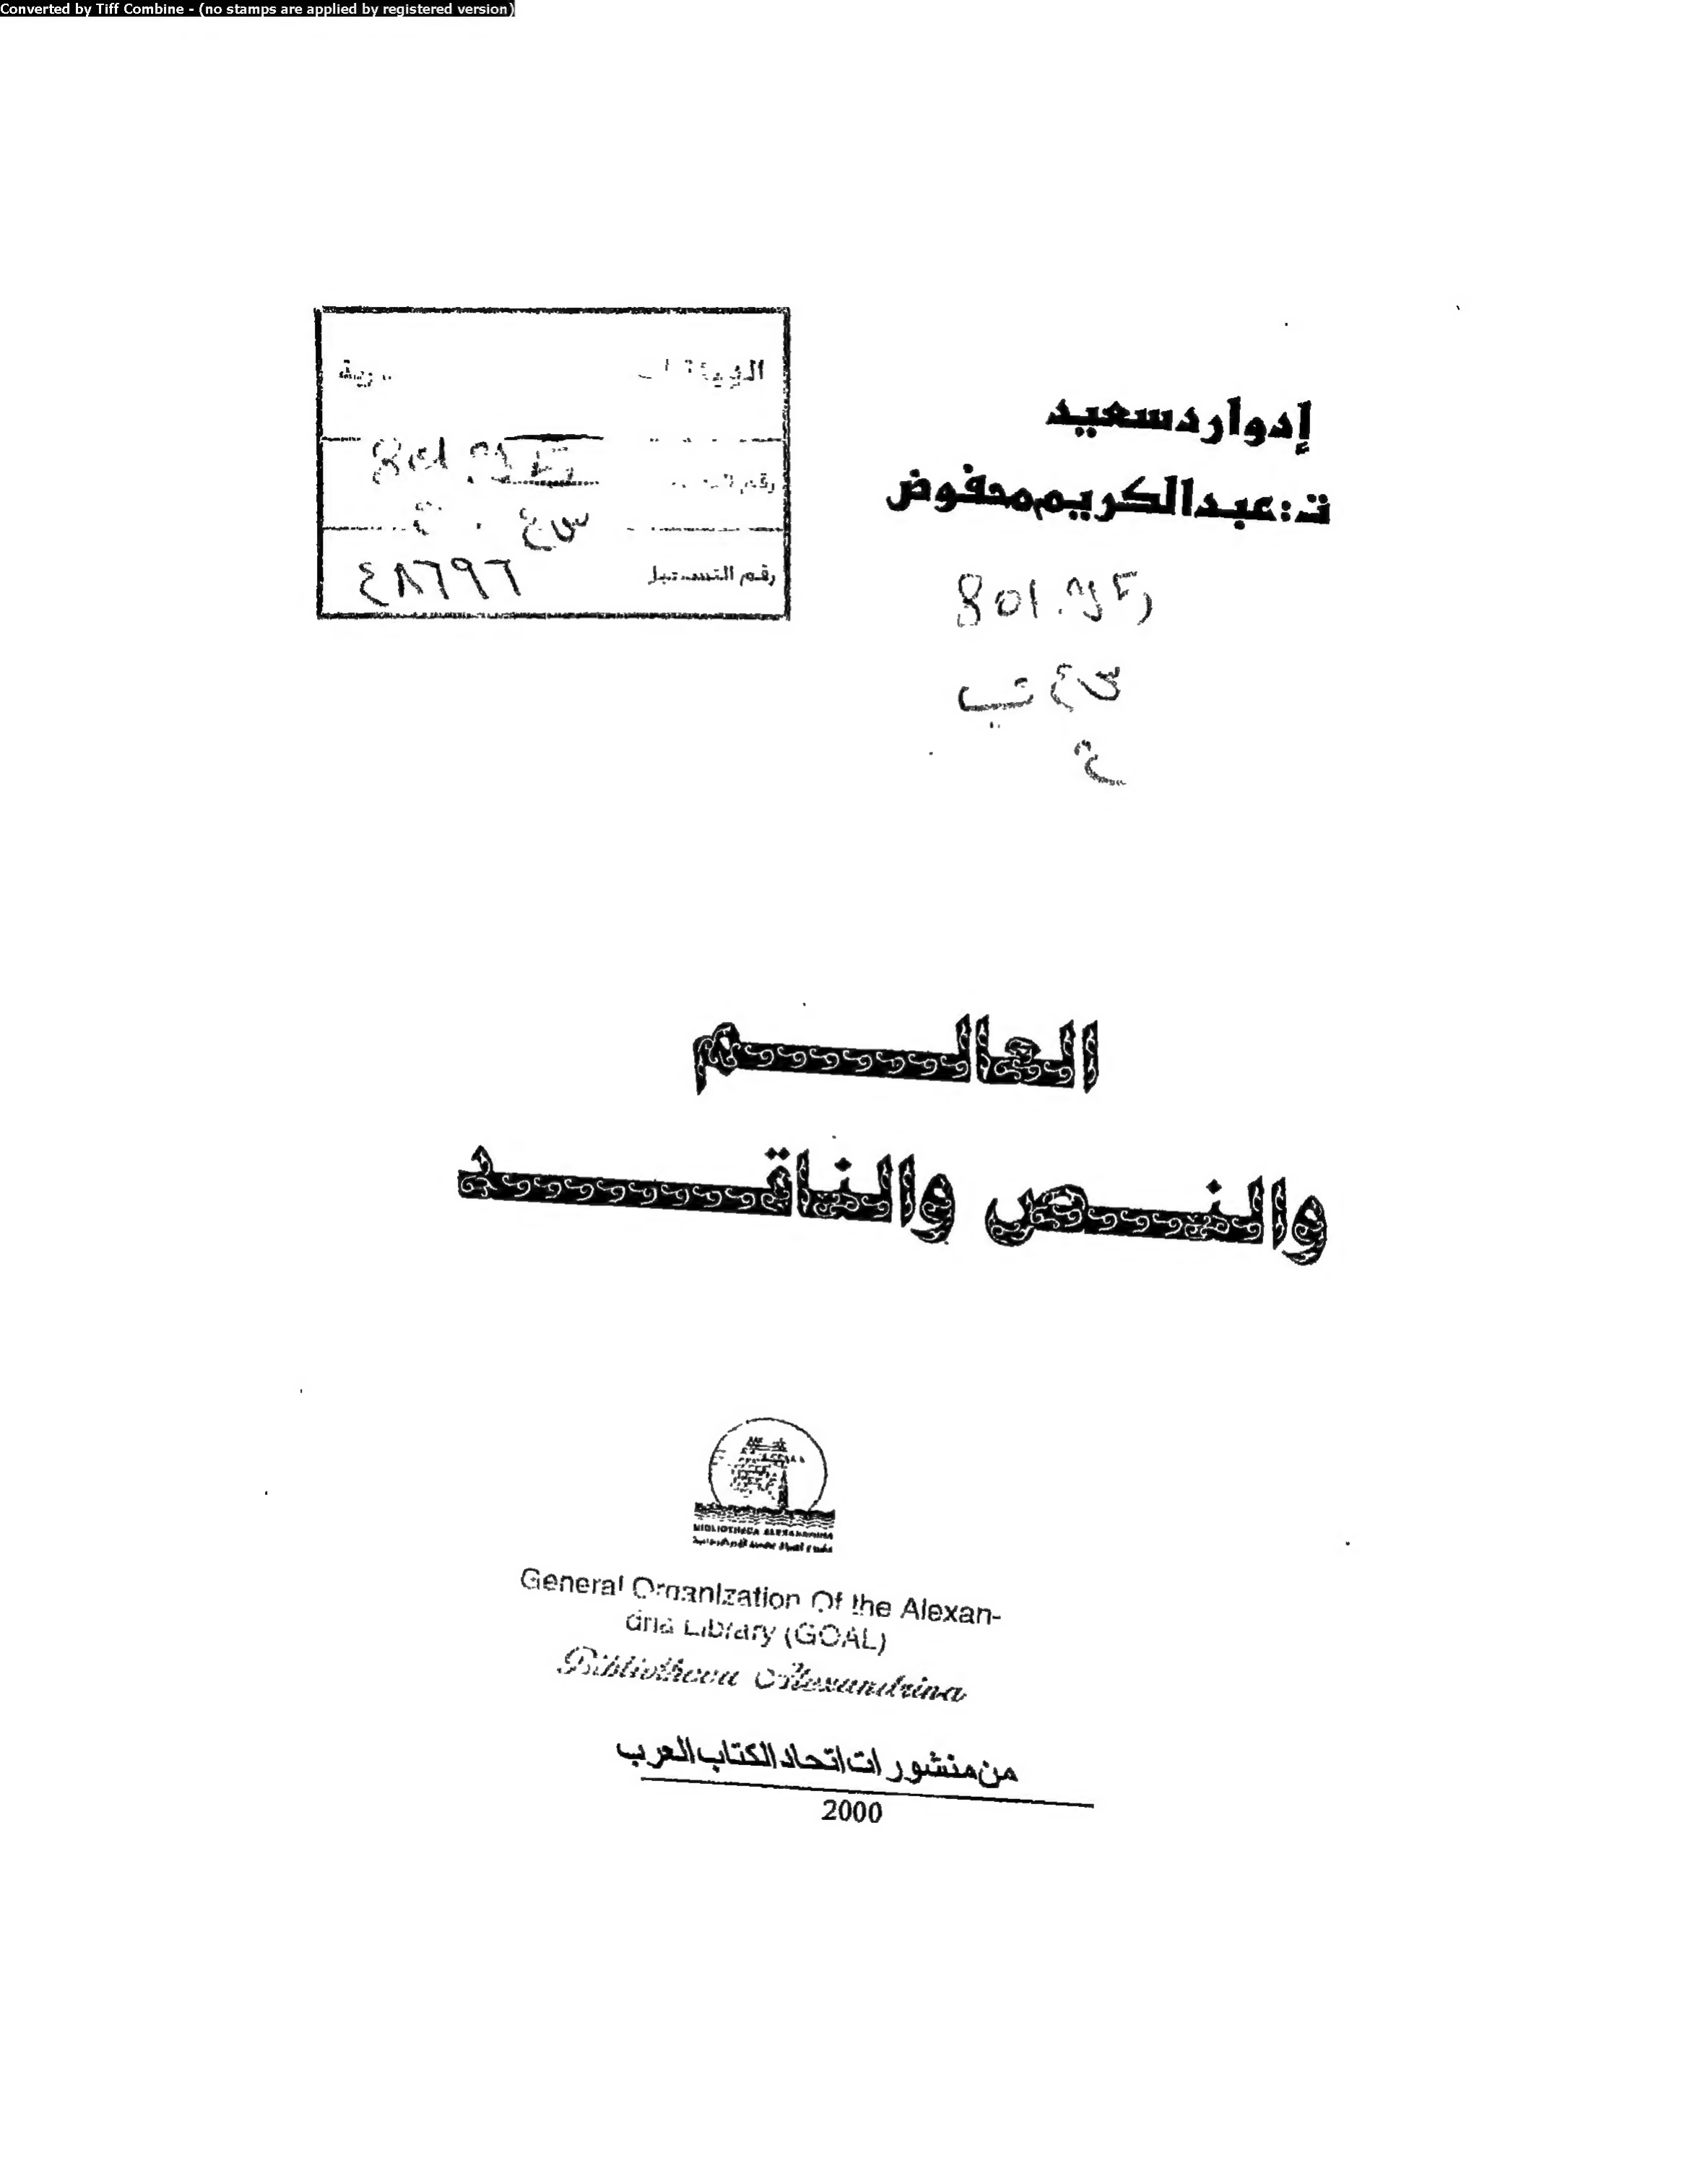 Converted by Tiff Combine - (no stamps are applied by registered version)
إدوارد سعيد
ت: عبد الكريم محفوض
رقم
رقم التسجيل ٤٨٦٩٦
العالــــم
والنــص والناقــــد
BIBLIOTHECA ALEXANDRINA
General Organization Of the Alexan-
dria Library (GOAL)
Bibliotheca Alexandrina
من منشورات اتحاد الكتاب العرب
2000